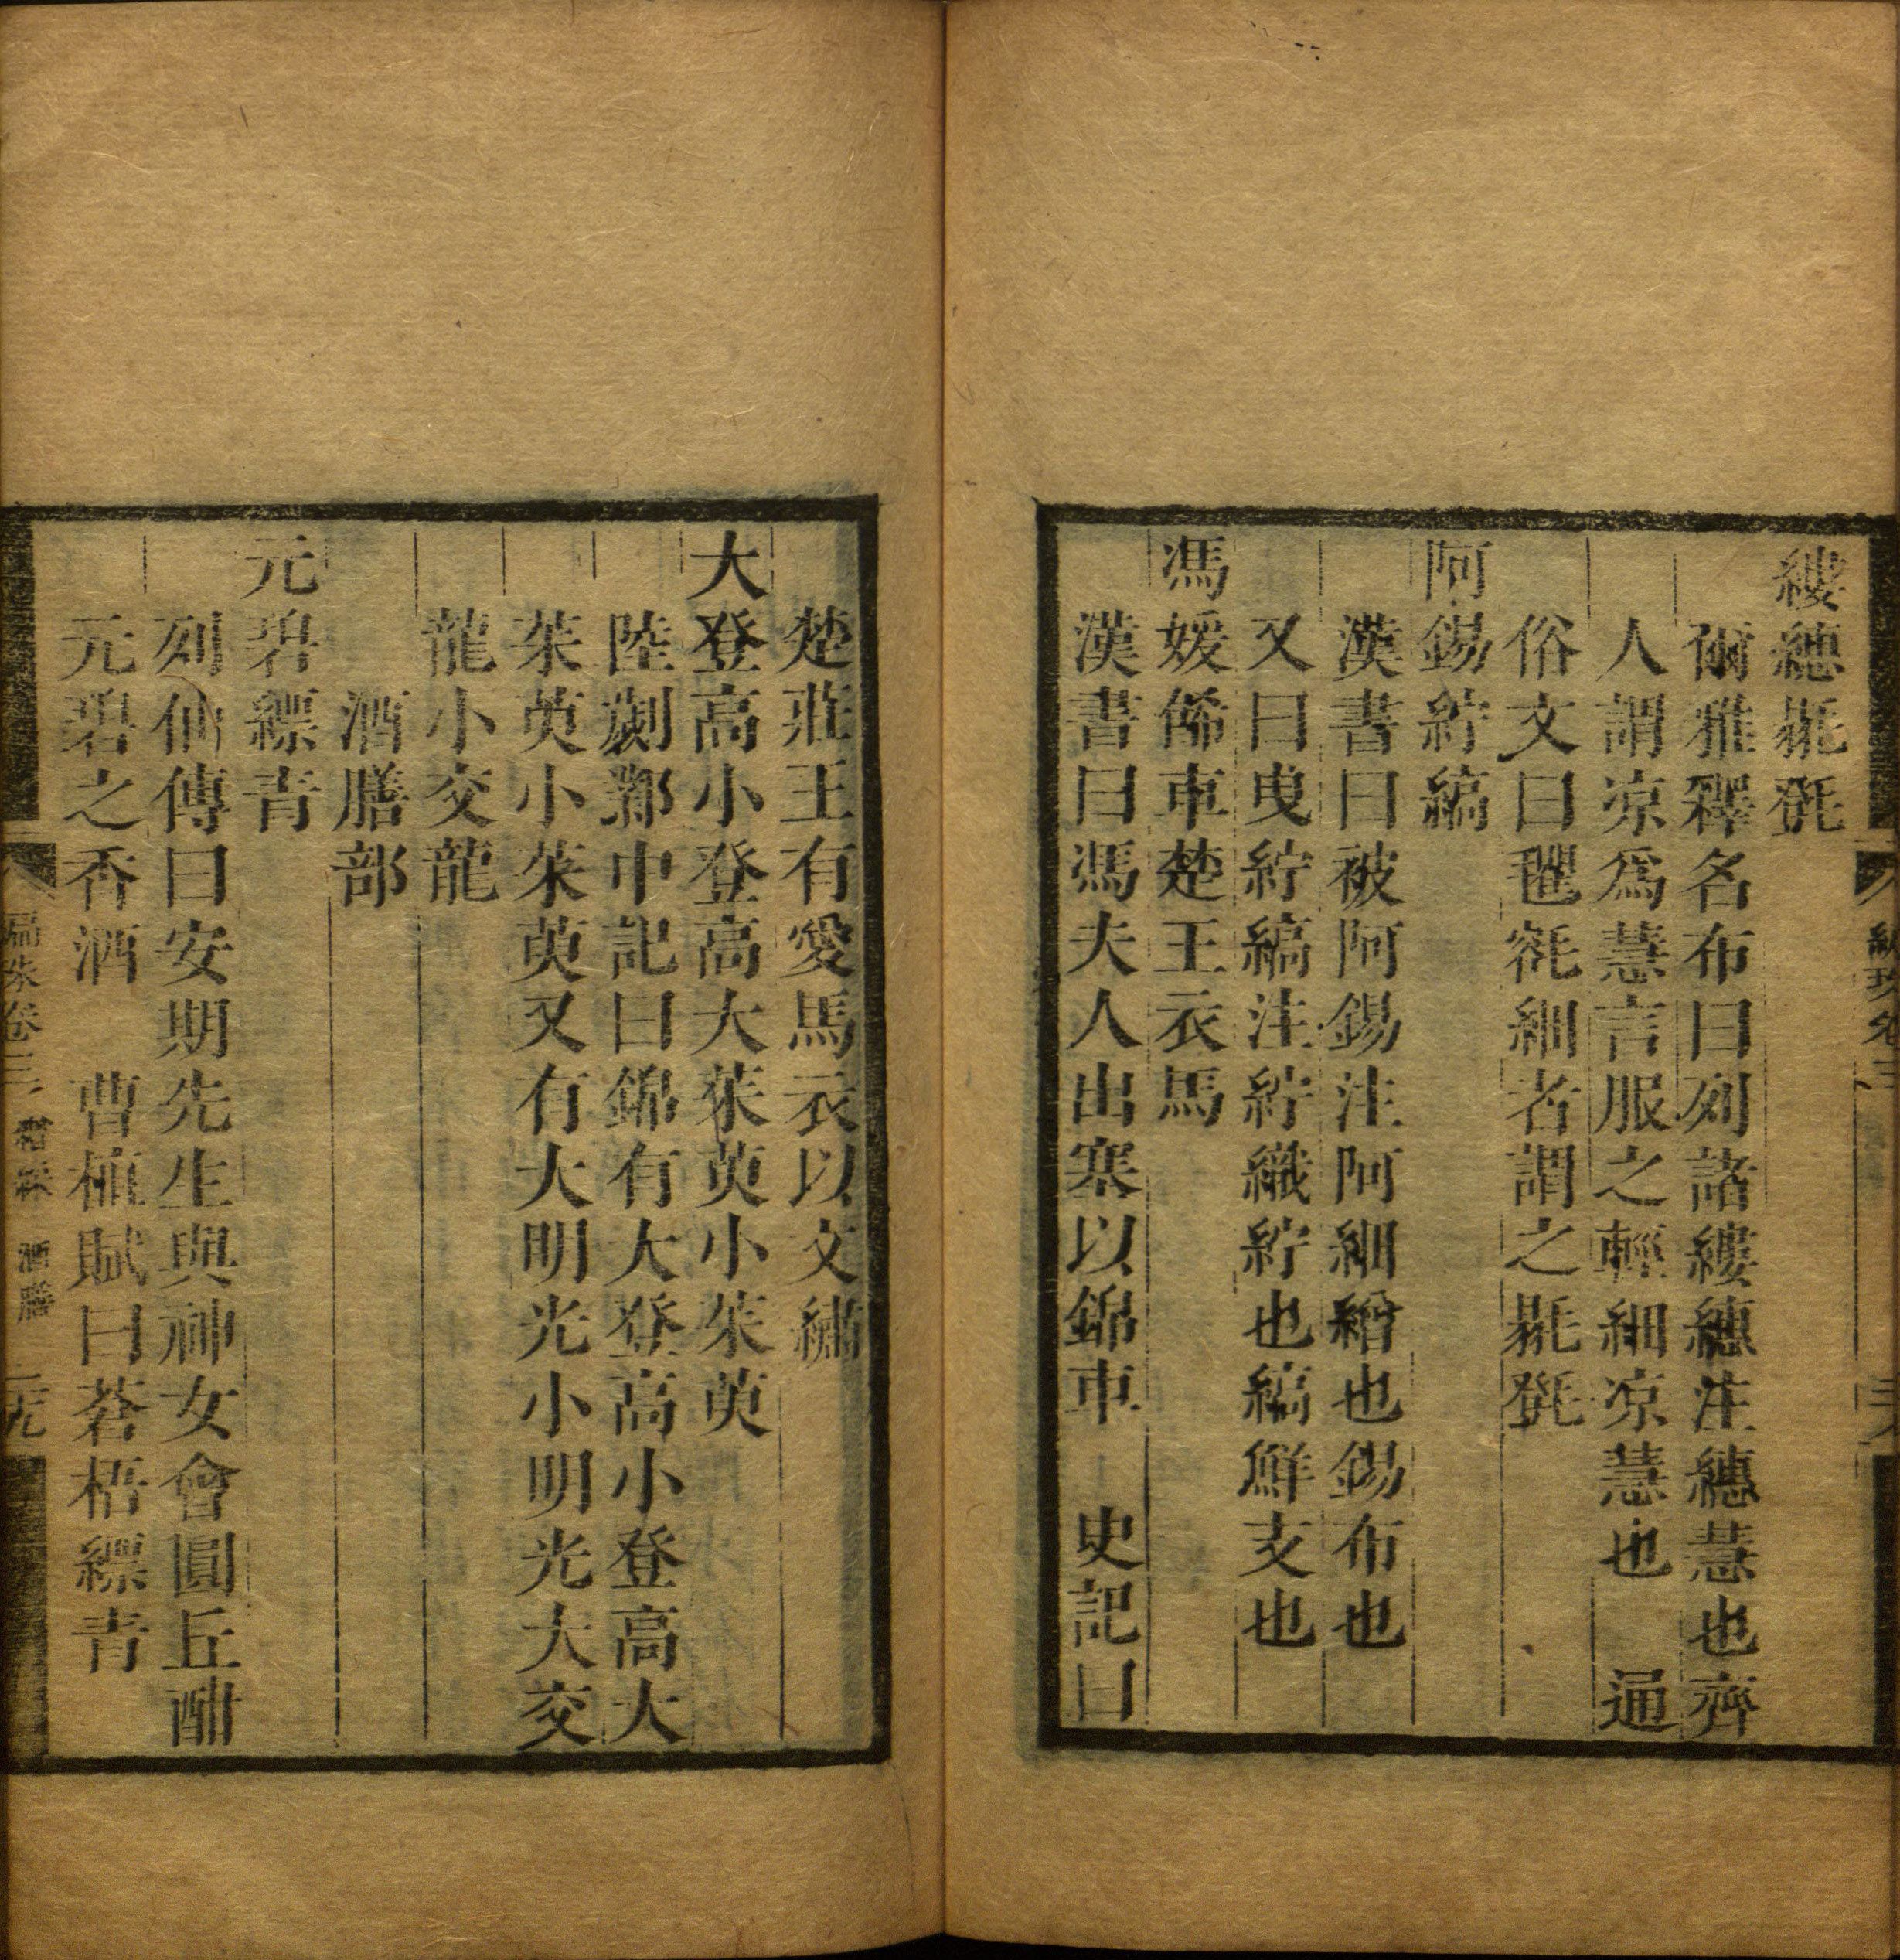 縷繐毾㲪
爾雅釋名布曰列諸縷繐注繐慧也齊
人謂凉爲慧言服之輕細凉慧也　通
俗文曰氍毹細者謂之毾㲪
阿錫紵縞
漢書曰被阿錫注阿細繒也錫布也
又曰曳紵縞注紵織紵也縞鮮支也
馮媛俙車楚王衣馬
漢書曰馮夫人出塞以錦車　史記曰
楚莊王有愛馬衣以文繡
大登高小登高大茱萸小茱萸
陸劌鄴中記曰錦有大登高小登高大
茱萸小茱萸又有大明光小明光大交
龍小交龍
酒膳部
元碧縹青
列仙傳曰安期先生與神女會圓丘酣
元碧之香酒　曹植賦曰蒼梧縹青
編珠卷三　酒膳